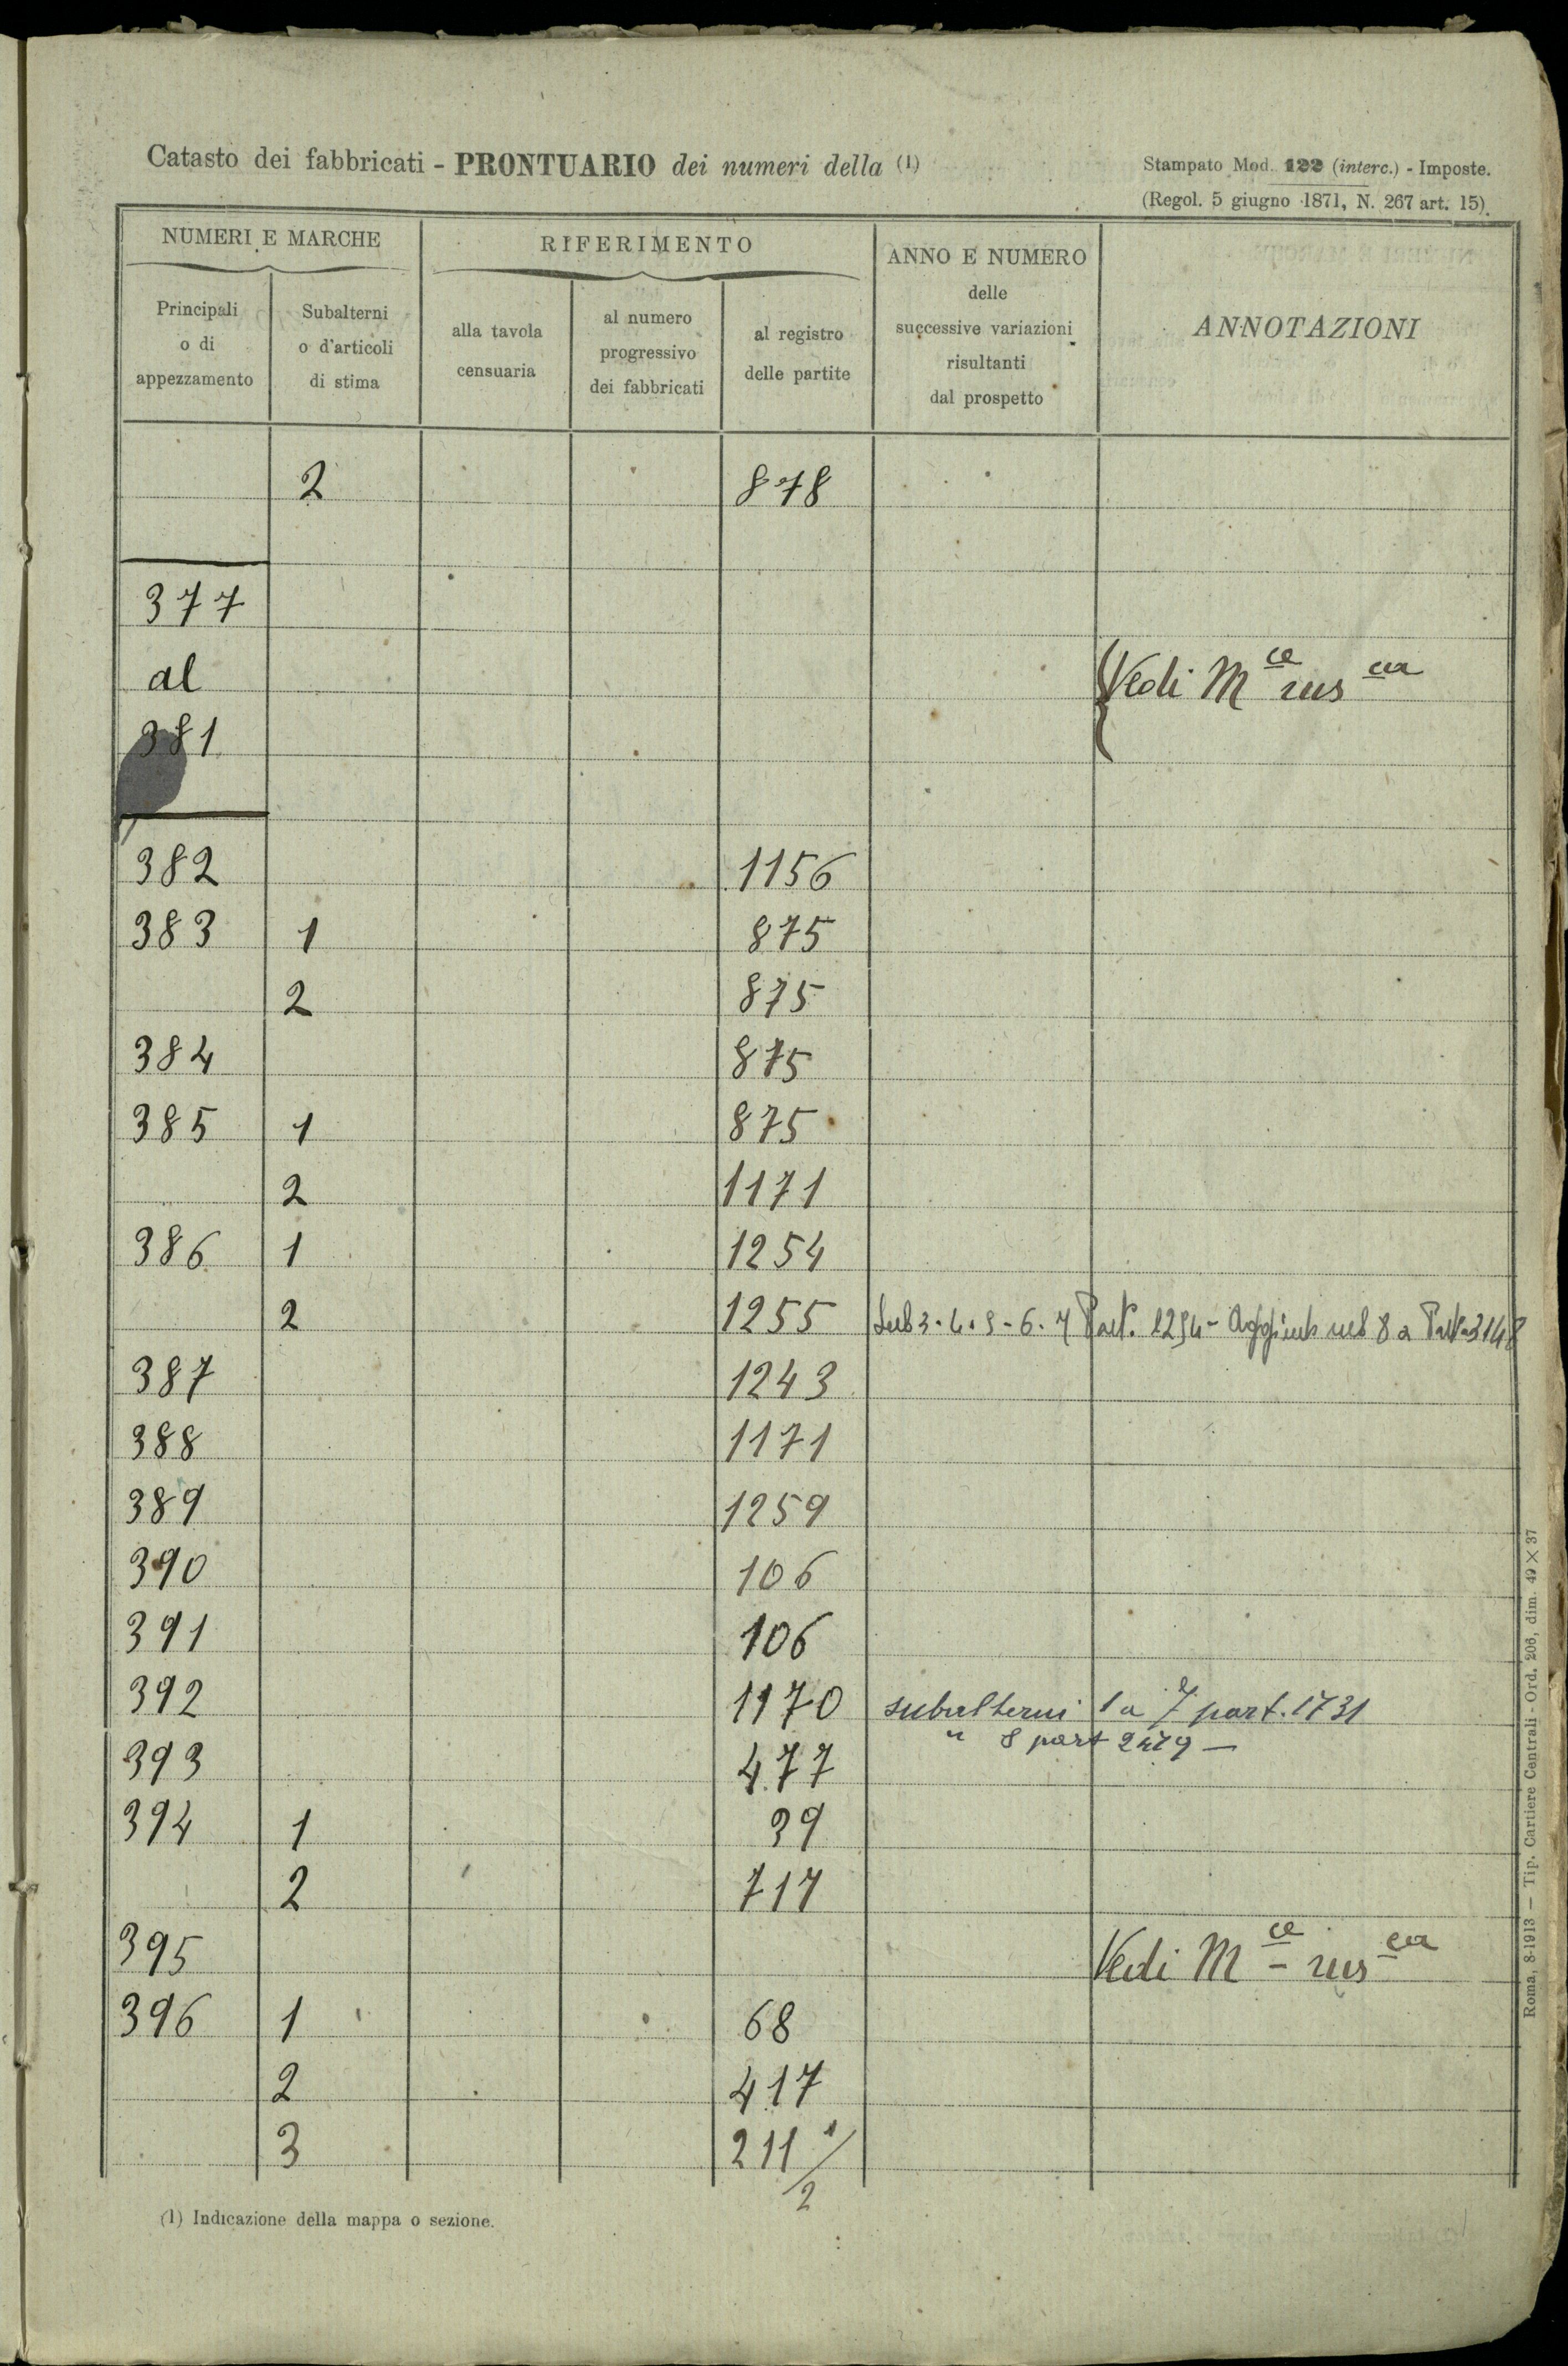 Catasto dei fabbricati - PRONTUARIO dei numeri della (1)
Stampato Mod. 122 (interc.) - Imposte.
(Regol. 5 giugno 1871, N. 267 art. 15).
NUMERI E MARCHE
RIFERIMENTO
ANNO E NUMERO
delle
successive variazioni
risultanti
dal prospetto
ANNOTAZIONI
Principali
o di
appezzamento
Subalterni
o d'articoli
di stima
alla tavola
censuaria
al numero
progressivo
dei fabbricati
al registro
delle partite
2 878
377
al Vedi M ce rus ca
381
382 1156
383 1 875
2 875
384 875
385 1 875
2 1171
386 1 1254
2 1255 Sub 3. 4. 5 - 6. 7 Part. 1254 - sub 8 a Part. 3148
387 1243
388 1171
389 1259
390 106
391 106
392 1170 subalterni 1 a 7 part. 1731
" 8 part 2479 —
393 477
394 1 39
2 717
395 Vedi M ce - rus ca
396 1 68
2 417
3 211 1/2
(1) Indicazione della mappa o sezione.
Roma, 8-1913 — Tip. Cartiere Centrali - Ord. 206, dim. 49 × 37